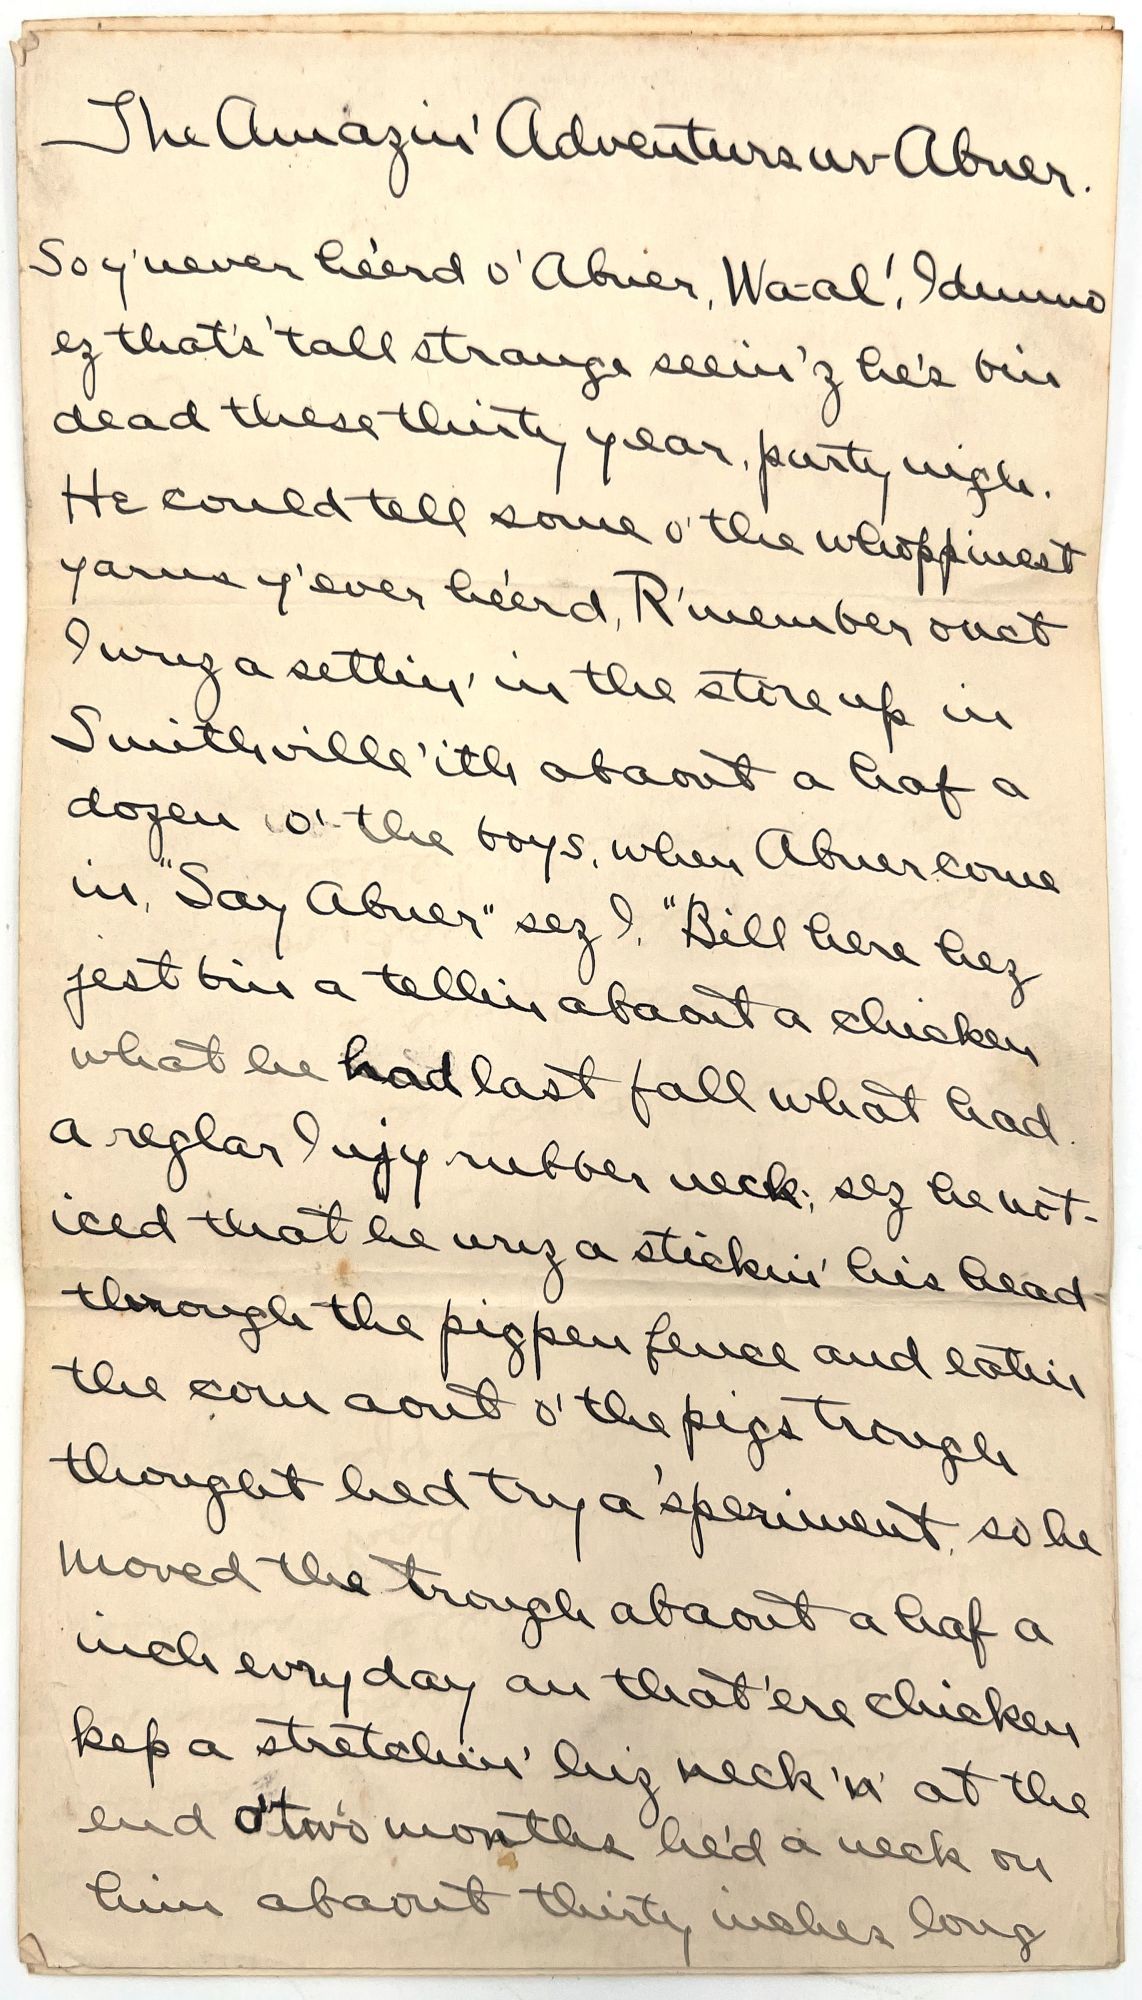 The Amazin' Adventurs uv Abner.
So y' never he'erd o' Abner, Wa-al!, I dunno
ez that's 'tall strange seein' 'z he's bin
dead these thirty year, purty nigh.
He could tell some o' the whoppinest
yarns y' ever he'erd, R'member onct
I wuz a settin' in the store up in
Smithville 'ith abaout a haf a
dozen o' the boys, when Abner come
in, "Say Abner" sez I, "Bill here hez
jest bin a tellin abaout a chicken
what he had last fall what had
a reglar Injy rubber neck; sez he not-
iced that he wuz a stickin' his head
through the pigpen fence and eatin
the corn aout o' the pigs trough
thought hed try a 'speriment, so he
moved the trough abaout a haf a
inch evry day an that 'ere chicken
kep a stretchin' hiz neck 'n' at the
end o' two months he'd a neck on
him abaout thirty inches long